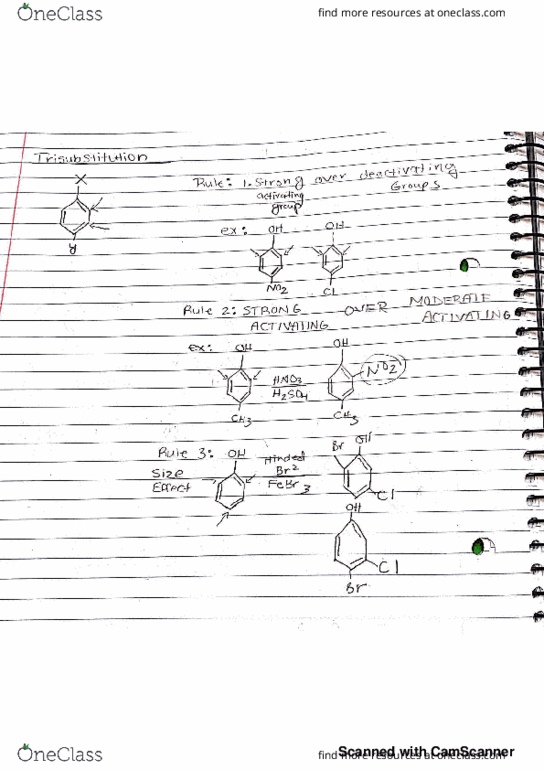 OneClass
find more resources at oneclass.com
Trisubstitution
X
R
Rule: 1. Strong over deactivating
activating Groups
group
ex: OH OH
NO2 Cl
Rule 2: STRONG OVER MODERATE
ACTIVATING ACTIVATING
ex: OH OH
NO2
HNO3
H2SO4
CH3 CH3
Rule 3: OH Hinded Br OH
Size Br2
Effect FeBr3
Cl
OH
Cl
Br
Scanned with CamScanner
OneClass
find more resources at oneclass.com